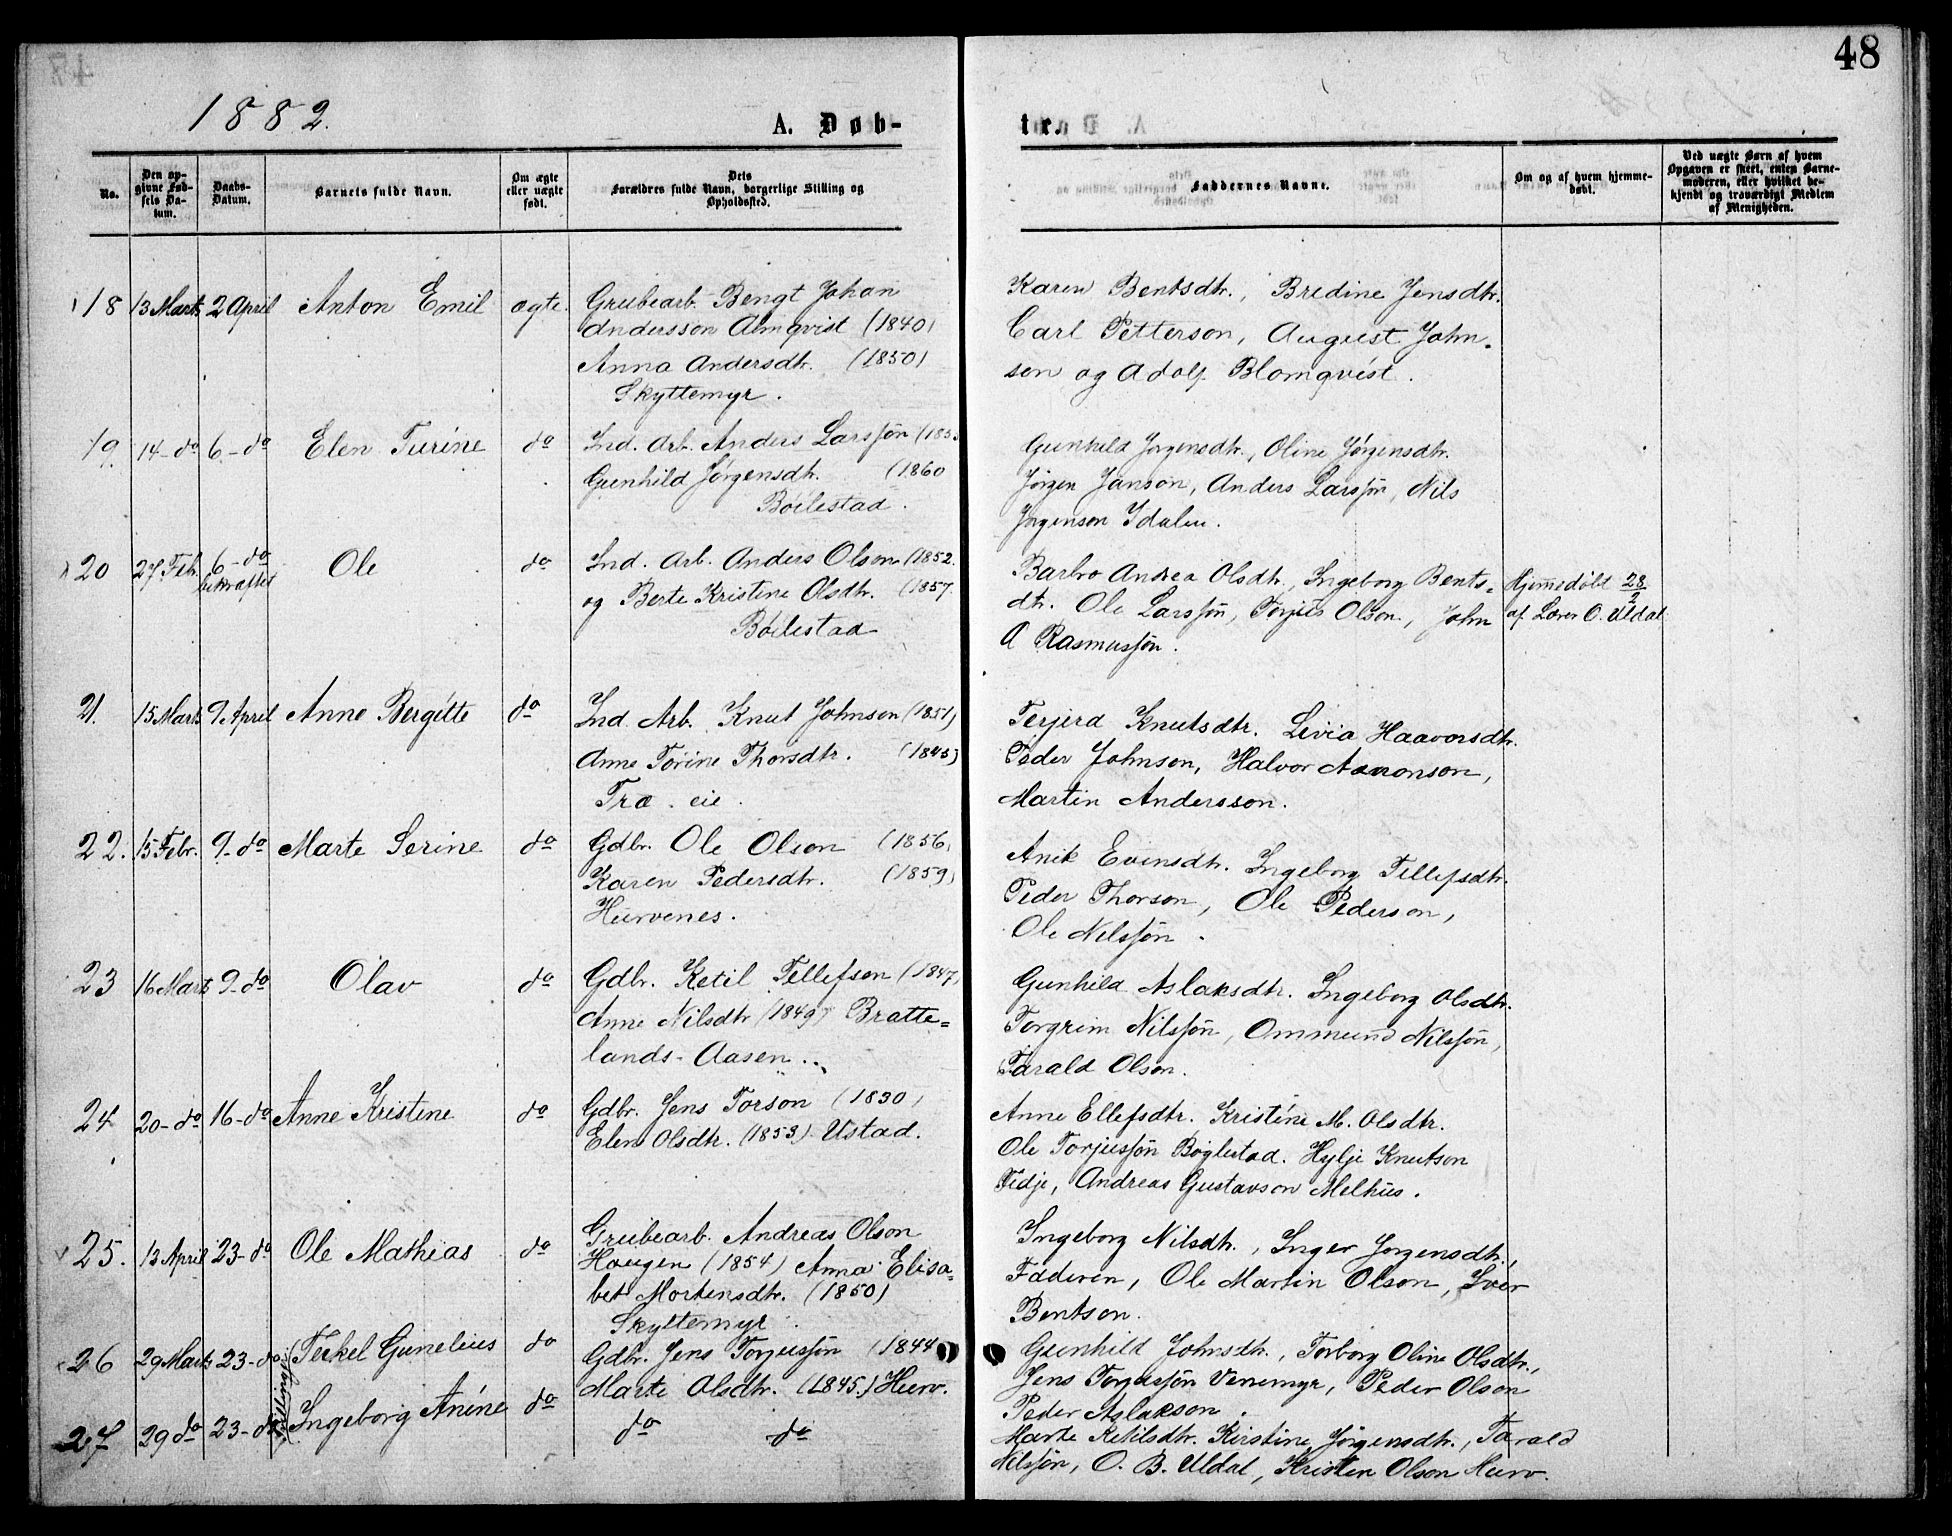 48
1882.
A. Døb-
tr.
No.
Den op-
givne Fød-
sels Da-
tum.
Daabs-
Datum.
Barnets fulde Navn.
Om ægte
eller uægte
født.
Dets
Forældres fulde Navn, borgerlige Stilling og
Opholdssted.
Faddernes Navne.
Om og af hvem hjemme-
døbt.
Ved uægte Børn af hvem
Opgaven er skeet, enten Barne-
moderen, eller hvilket be-
kjendt og troværdigt Medlem
af Menigheden.
18 13 Marts 2 April Anton Emil ægte. Grubearb. Bengt Johan
Andersson Almqvist (1840)
Anna Andersdtr. (1850)
Skyttemyr.
Karen Bentsdtr., Bredine Jensdtr.
Carl Petterson, August John-
sen og Adolf Blomqvist.
19. 14-do 6-do Elen Turine do Ind. Arb. Anders Larssøn (185
Gunhild Jørgensdtr. (1860
Bøilestad.
Gunhild Jørgensdtr., Oline Jørgensdtr.
Jørgen Janson, Anders Larssøn, Nils
Jørgenson Ydalen.
20 27 Feb. 6-do bekræftet Ole do Ind. Arb. Anders Olson (1852.
og Berte Kristine Olsdtr. (1857.
Bøilestad
Barbro Andrea Olsdtr., Ingeborg Bents-
dtr. Ole Larssøn, Torjus Olson, John
A Rasmussøn.
Hjemmedøbt 28/2
af Lærer O. Uldal
21. 15 Marts 9 April Anne Bergitte do Ind. Arb. Knut Johnson (1851)
Anne Torine Thorsdtr. (1845)
Træ. eie.
Terjerd Knutsdtr. Livia Haavorsdtr.
Peder Johnson, Halvor Aanonson,
Martin Andersson.
22. 15 Febr. 9-do Marte Serine do Gdbr. Ole Olson (1856)
Karen Pedersdtr. (1859)
Hurvenes.
Anik Evensdtr. Ingeborg Tellefsdtr.
Peder Thorson, Ole Pederson,
Ole Nilssøn.
23 16 Marts 9-do Olav do Gdbr. Ketil Tellefsen (1847,
Anne Nilsdtr (1849) Bratte=
lands-Aasen..
Gunhild Aslaksdtr. Ingeborg Olsdtr.
Torgrim Nilssøn, Ommund Nilssøn,
Tarald Olson.
24 20-do 16-do Anne Kristine do Gdbr. Jens Torson (1830)
Elen Olsdtr. (1853) Ustad.
Anne Ellefsdtr. Kristine M. Olsdtr.
Ole Torjussøn Bøglestad. Hylje Knutson
Tedje, Andreas Gustavson Melhus.
25. 13 April 23-do Ole Mathias do Grubearb. Andreas Olson
Haugen (1854) Anna Elisa-
bet Mortensdtr. (1850)
Skyttemyr.
Ingeborg Nilsdtr., Inger Jørgensdtr.,
Faderen, Ole Martin Olson, Iver
Bentson.
26 29 Marts 23-do Terkel Gunelius do Gdbr. Jens Torjussøn (1844
Marte Olsdtr. (1845.) Hurv.
Gunhild Johnsdtr., Torborg Oline Olsdtr.,
Jens Torjussøn Venemyr, Peder Olson
Peder Aslakson.
Tvillinger
27 29 do 23-do Ingeborg Anine do do do
Marte Ketilsdtr. Kirstine Jørgensdtr., Tarald
Nilssøn, O. B. Uldal, Kristen Olson Hurv.